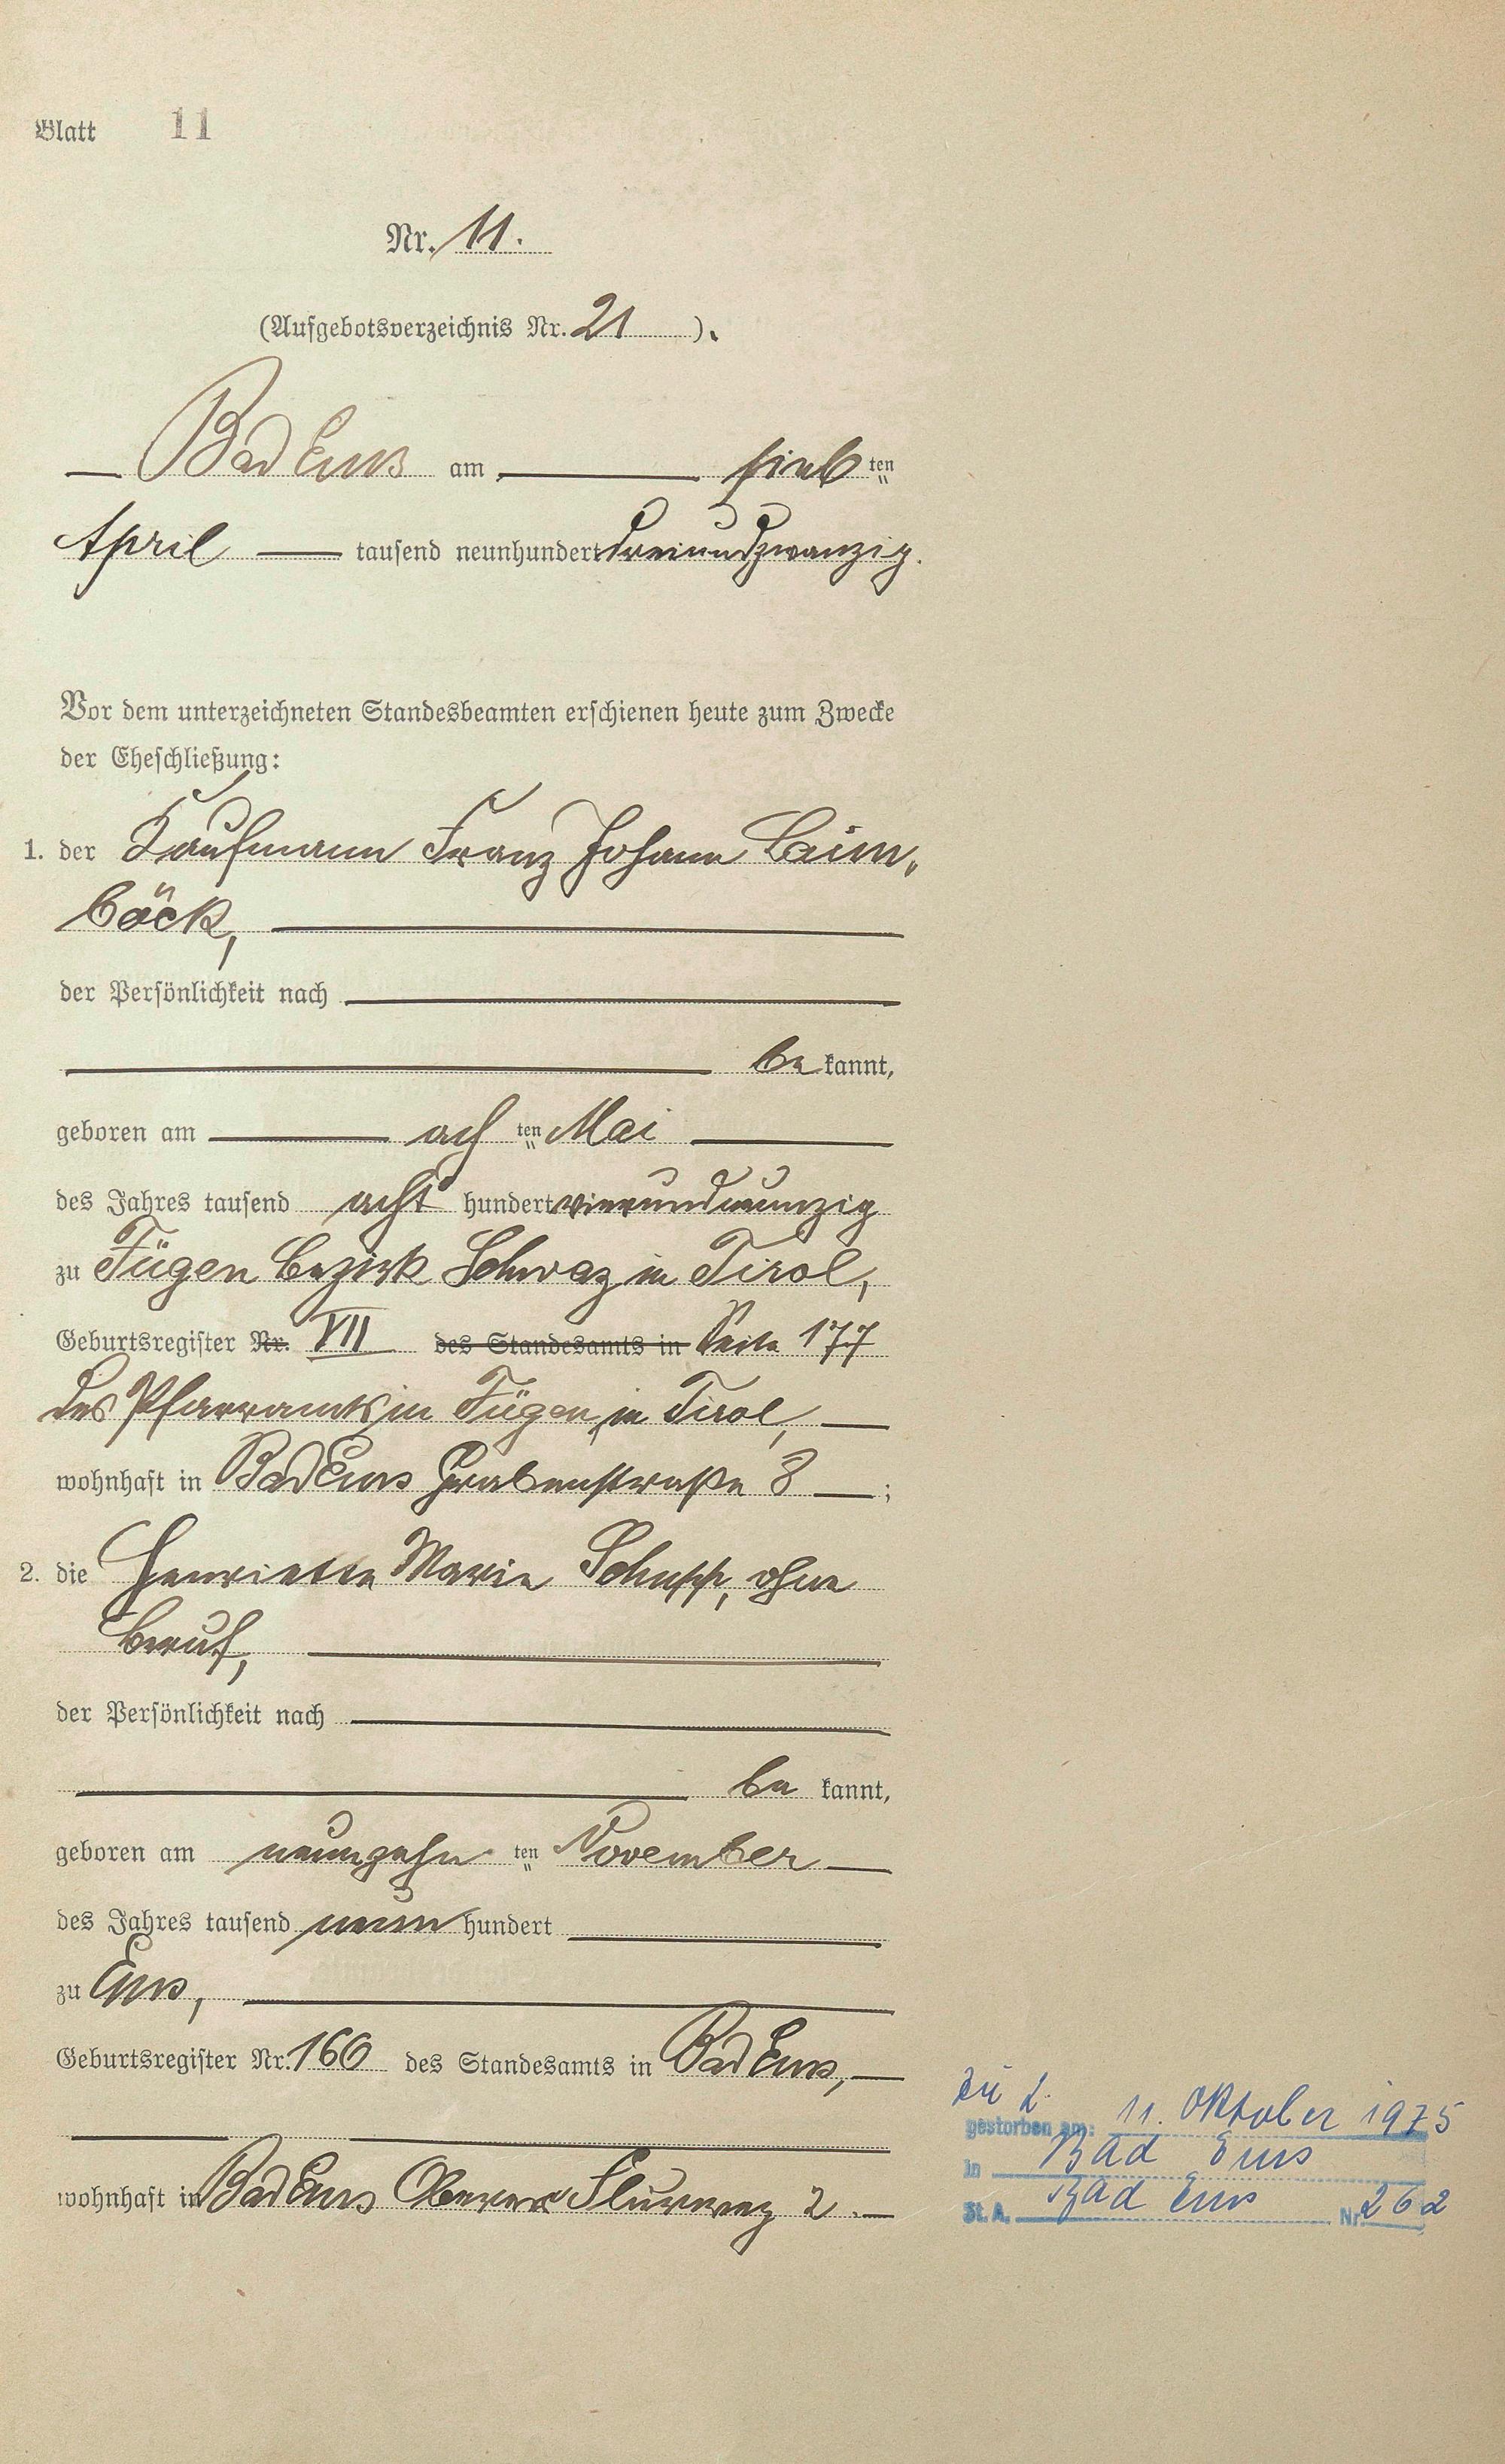 Blatt 11
Nr. 11.
(Aufgebotsverzeichnis Nr. 21).
Bad Ems am siebten
April tausend neunhundert dreiundzwanzig.
Vor dem unterzeichneten Standesbeamten erschienen heute zum Zwecke
der Eheschließung:
1. der Kaufmann Franz Johann Laim„
böck,
der Persönlichkeit nach
be kannt,
geboren am achten Mai
des Jahres tausend acht hundert vierundneunzig
zu Fügen Bezirk Schwaz in Tirol,
Geburtsregister Nr. VII des Standesamts in Seite 177
des Pfarramts in Fügen, in Tirol,
wohnhaft in Bad Ems Grabenstraße 8 ;
2. die Henriette Marie Schupp, ohne
Beruf,
der Persönlichkeit nach
be kannt,
geboren am neunzehnten November
des Jahres tausend neun hundert
zu Ems,
Geburtsregister Nr. 160 des Standesamts in Bad Ems,
wohnhaft in Bad Ems Oberer Flurweg 2.
zu 2.
gestorben am: 11. Oktober 1975
in Bad Ems
St. A. Bad Ems Nr. 262